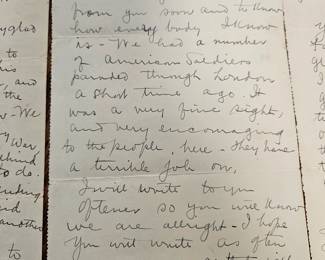 from you soon and to know
how every body I know
is - We had a number
of American Soldiers
paraded through London
a short time ago. It
was a very fine sight,
and very encouraging
to the people, here - They have
a terrible job on,
I will write to you
oftener so you will know
we are allright - I hope
you will write as often
glad
to
his
, and
the
- We
War,
behind
to do.
another
to